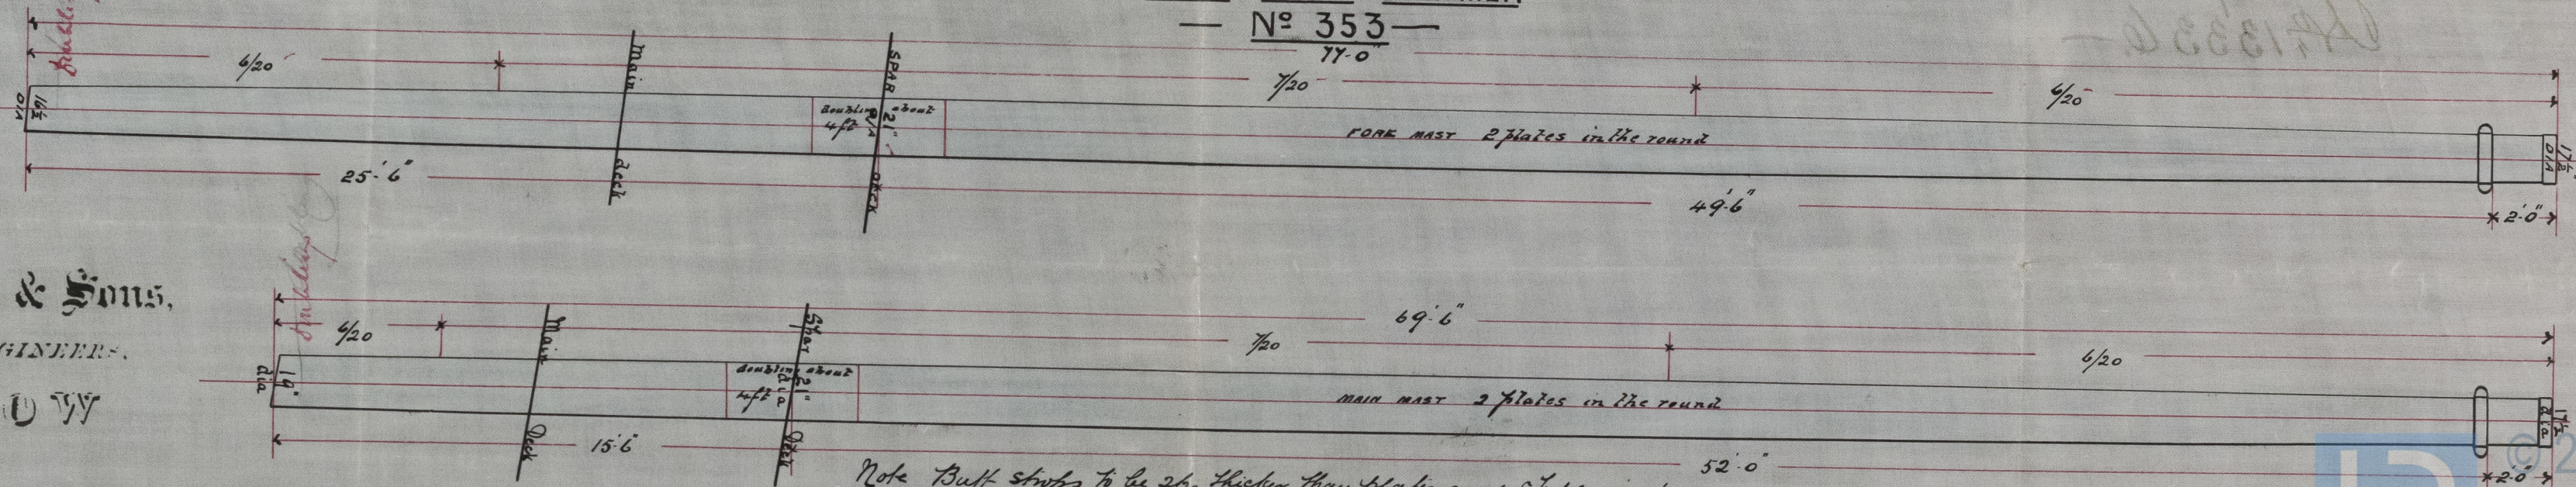 — Nº 353 —
77'-0"
6/20
7/20
6/20
Main deck
SPAR deck
16½ DIA
Doubling about
4ft
21"
FORE MAST 2 plates in the round
17½" DIA
25'-6"
49'-6"
2'-0"
Doubling
& Sons,
GINEERS,
OW
69'-6"
6/20
7/20
6/20
Main Deck
Spar Deck
19" dia
Doubling about
4ft
21" dia
MAIN MAST 2 plates in the round
17½ dia
15'-6"
52'-0"
2'-0"
Note Butt straps to be thicker than plates
© 2